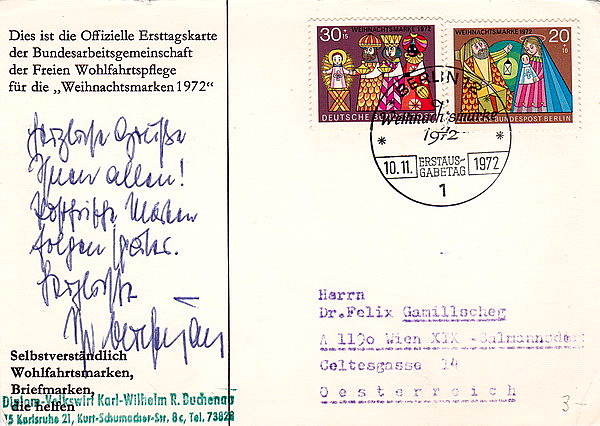 Dies ist die Offizielle Ersttagskarte
der Bundesarbeitsgemeinschaft
der Freien Wohlfahrtspflege
für die „Weihnachtsmarken 1972“
Herzliche Grüße
Ihnen allen!
Postfrische Marken
folgen später.
Herzlichst
Selbstverständlich
Wohlfahrtsmarken,
Briefmarken,
die helfen
Diplom-Volkswirt Karl-Wilhelm R. Buchenau
75 Karlsruhe 21, Kurt-Schumacher-Str. 8c, Tel. 73828
30+15 WEIHNACHTSMARKE 1972
DEUTSCHE
WEIHNACHTSMARKE 1972 20+10
POST BERLIN
BERLIN 12
Weihnachtsmarke
1972
10.11. ERSTAUS-
GABETAG 1972
1
Herrn
Dr.Felix Gamillscheg
A 1190 Wien XIX -Salmannsdorf
Celtesgasse 14
Oesterreich
3-